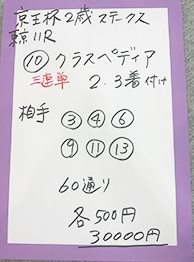 京王杯2歳ステークス
東京11R
⑩クラスペディア
三連単 2.3着付け
相手 ③④⑥
⑨⑪⑬
60通り
各500円
30000円